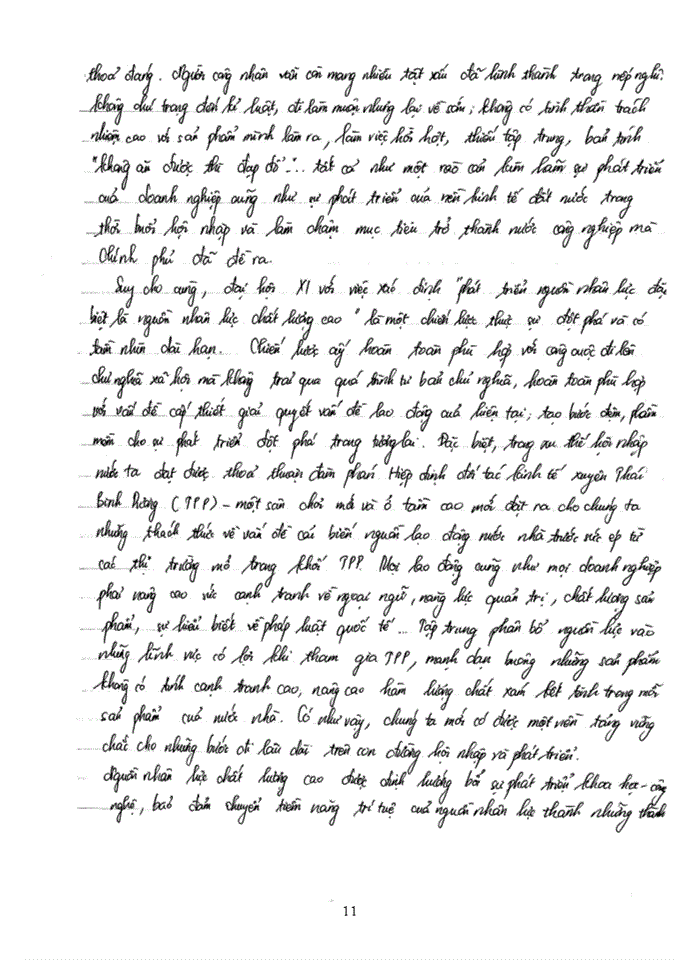 thoả đáng. Người công nhân vẫn còn mang nhiều tật xấu đã hình thành trong nếp nghĩ.
không chú trọng đến kỉ luật, đi làm muộn nhưng lại về sớm; không có tinh thần trách
nhiệm cao với sản phẩm mình làm ra, làm việc hời hợt, thiếu tập trung, bản tính
"không ăn được thì đạp đổ"... tất cả như một rào cản làm sự phát triển
của doanh nghiệp cũng như sự phát triển của nền kinh tế đất nước trong
thời buổi hội nhập và làm chậm mục tiêu trở thành nước công nghiệp mà
Chính phủ đã đề ra.
Suy cho cùng, đại hội XI với việc xác định "phát triển nguồn nhân lực đặc
biệt là nguồn nhân lực chất lượng cao" là một chiến lược thực sự đột phá và có
tầm nhìn dài hạn... Chiến lược ấy hoàn toàn phù hợp với công cuộc đi lên
chủ nghĩa xã hội mà không trải qua quá trình tư bản chủ nghĩa, hoàn toàn phù hợp
với vấn đề cấp thiết giải quyết vấn đề lao động của hiện tại; tạo bước đệm,
mầm cho sự phát triển đột phá trong tương lai. Đặc biệt, trong xu thế hội nhập
nước ta đạt được thoả thuận đàm phán Hiệp định đối tác kinh tế xuyên Thái
Bình Dương (TPP) - một sân chơi mới và ở tầm cao mới đặt ra cho chúng ta
những thách thức về vấn đề cải biến người lao động nước nhà trước sức ép từ
các thị trường mở trong khối TPP. Mọi lao động cũng như mọi doanh nghiệp
phải nâng cao sức cạnh tranh về ngoại ngữ, năng lực quản trị, chất lượng sản
phẩm, sự hiểu biết về pháp luật quốc tế... Tập trung phân bổ nguồn lực vào
những lĩnh vực có lợi khi tham gia TPP, mạnh dạn buông những sản phẩm
không có tính cạnh tranh cao, nâng cao hàm lượng chất xám kết tinh trong mỗi
sản phẩm của nước nhà. Có như vậy, chúng ta mới có được một nền tảng vững
chắc cho những bước đi lâu dài trên con đường hội nhập và phát triển.
Nguồn nhân lực chất lượng cao được định hướng bởi sự phát triển khoa học - công
nghệ, bảo đảm chuyển tiềm năng trí tuệ của nguồn nhân lực thành những thành
11